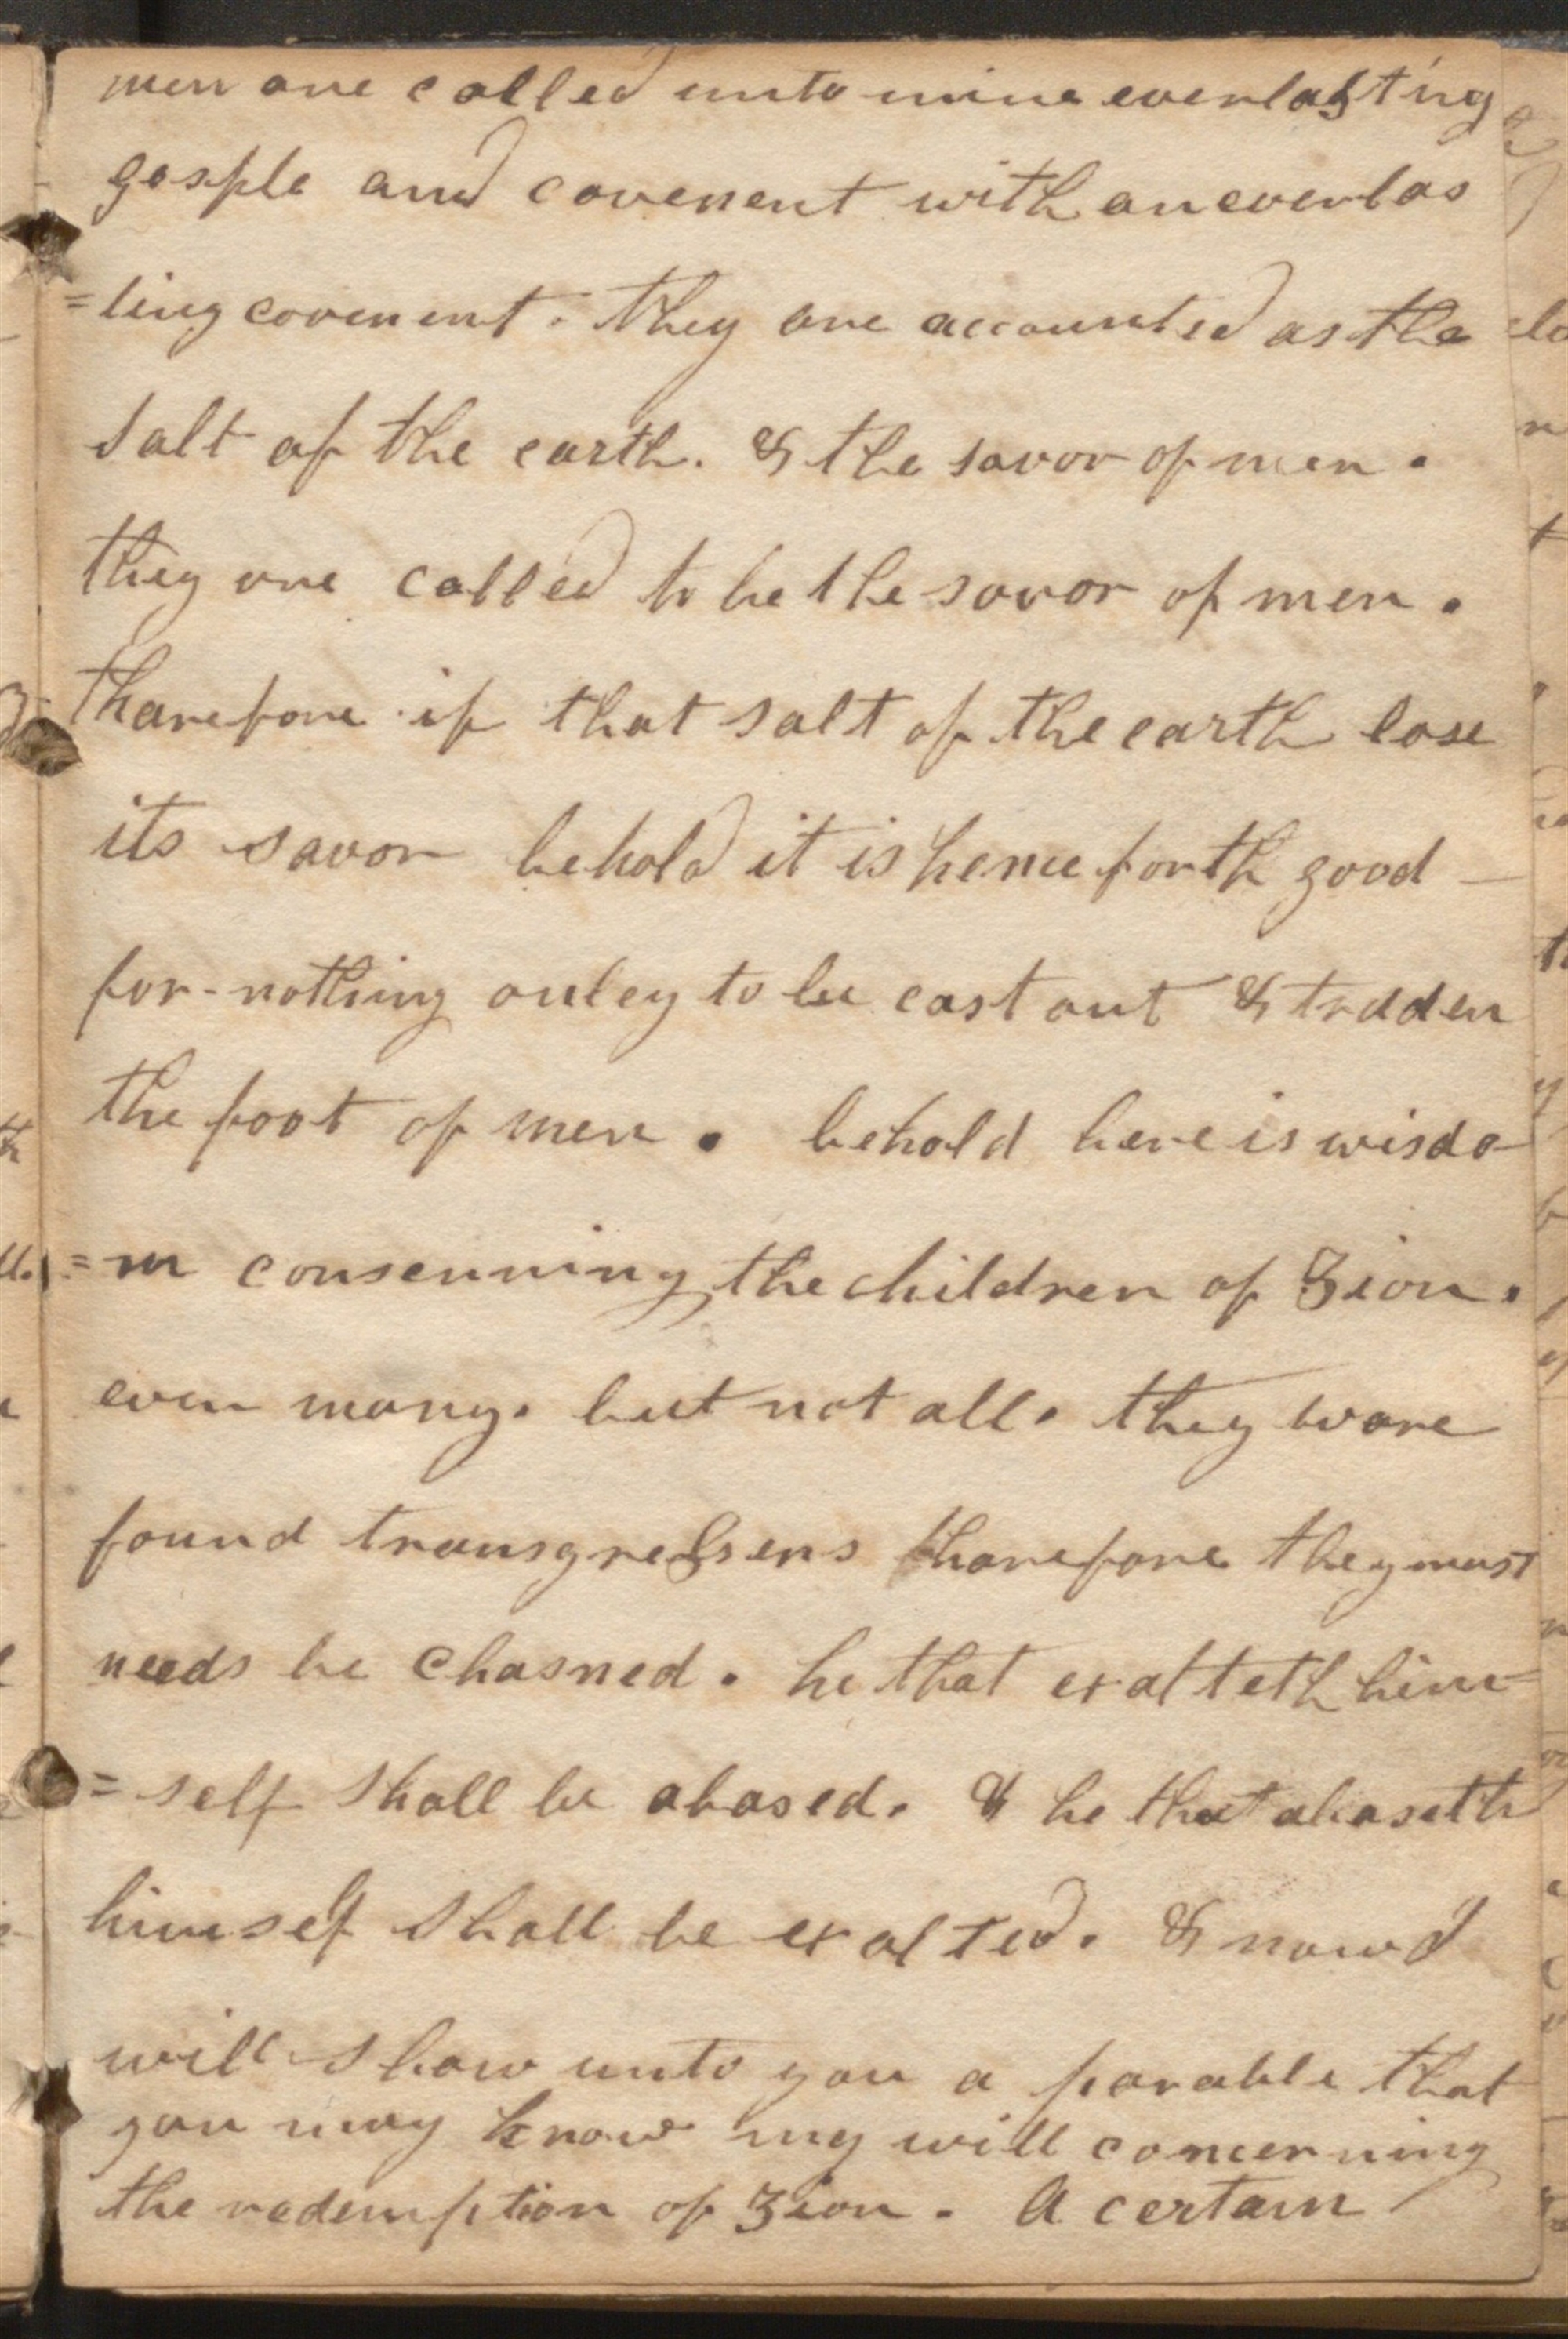 men are called unto mine everlasting
gosple and covenent with an everlas
=ting covenent. they are accounted as the
salt of the earth. & the savor of men.
they are called to be the savor of men.
tharefore if that salt of the earth lose
its savor behold it is henceforth good —
for-nothing onley to be cast out & trdden
the foot of men. behold here is wisdo
=m consenning the children of Zion.
even many. but not all. they ware
found transgressers tharefore they must
needs be chasned. he that exalteth him=
=self shall be abased. & he that abaseth
himself shall be exalted. & now I
will show unto you a parable that
you may know my will concerning
the redemption of Zion. A certain